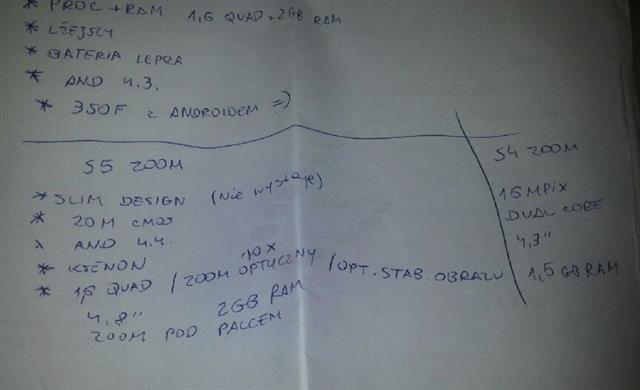 * PROC + RAM 1,6 QUAD + 2GB RAM
* LŻEJSZY
* BATERIA LEPSZA
* AND 4.3.
* 350F z ANDROIDEM =)
S5 ZOOM
* SLIM DESIGN (Nie wystaje)
* 20M CMOS
* AND 4.4.
* KSENON
* 1,6 QUAD / ZOOM 10X OPTYCZNY / OPT. STAB. OBRAZU
4,8" 2GB RAM
ZOOM POD PALCEM
S4 ZOOM
16 MPIX
DUAL CORE
4,3"
1,5 GB RAM